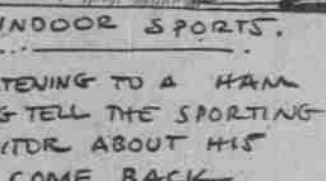 INDOOR SPORTS.
TENING TO A HAM
G TELL THE SPORTING
ITOR ABOUT HIS
COME BACK